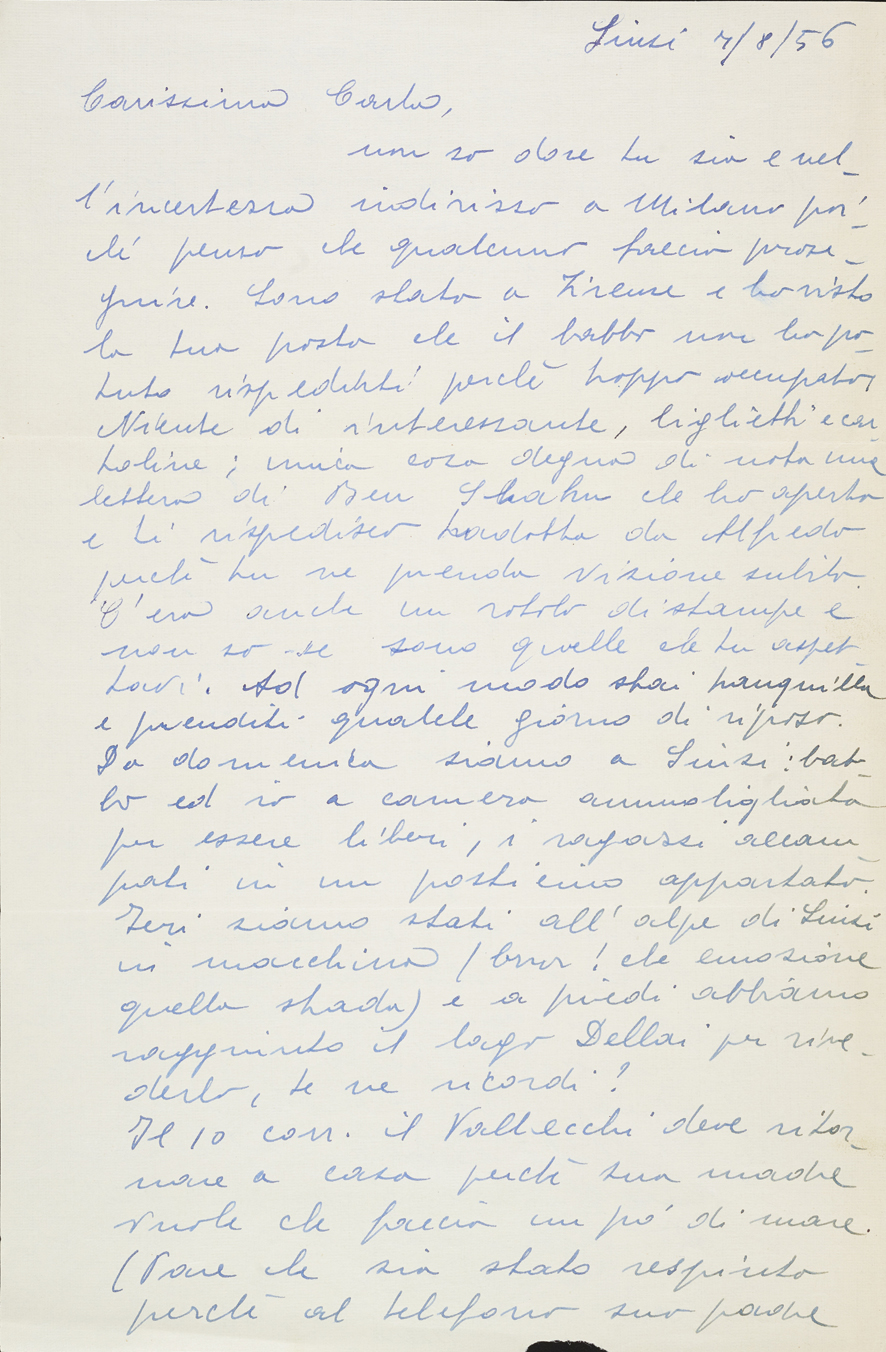 Siusi 7/8/56
Carissima Carla,
non so dove tu sia e nel-
l'incertezza indirizzo a Milano poi-
ché penso che qualcuno faccia prose-
guire. Sono stata a Firenze e ho visto
la tua posta che il babbo non ha po-
tuto rispedirti perchè troppo occupato;
Niente di interessante, biglietti e car-
toline; unica cosa degna di nota una
lettera di Ben Shahn che ho aperto
e ti rispedisco tradotta da Alfredo
perchè tu ne prenda visione subito.
C'era anche un rotolo di stampe e
non so se sono quelle che tu aspet-
tavi. Ad ogni modo stai tranquilla
e prenditi qualche giorno di riposo.
Da domenica siamo a Siusi: bab-
bo ed io a camera ammobigliata
per essere liberi, i ragazzi accam
pati in un posticino appartato.
Ieri siamo stati all'alpe di Siusi
in macchina (brrr! che emozione
quella strada) e a piedi abbiamo
raggiunto il lago Dellai per rive-
derlo, te ne ricordi?
Il 10 corr. il Vallecchi deve ritor-
nare a casa perchè sua madre
vuole che faccia un po' di mare.
(Pare che sia stato respinto
perchè al telefono suo padre